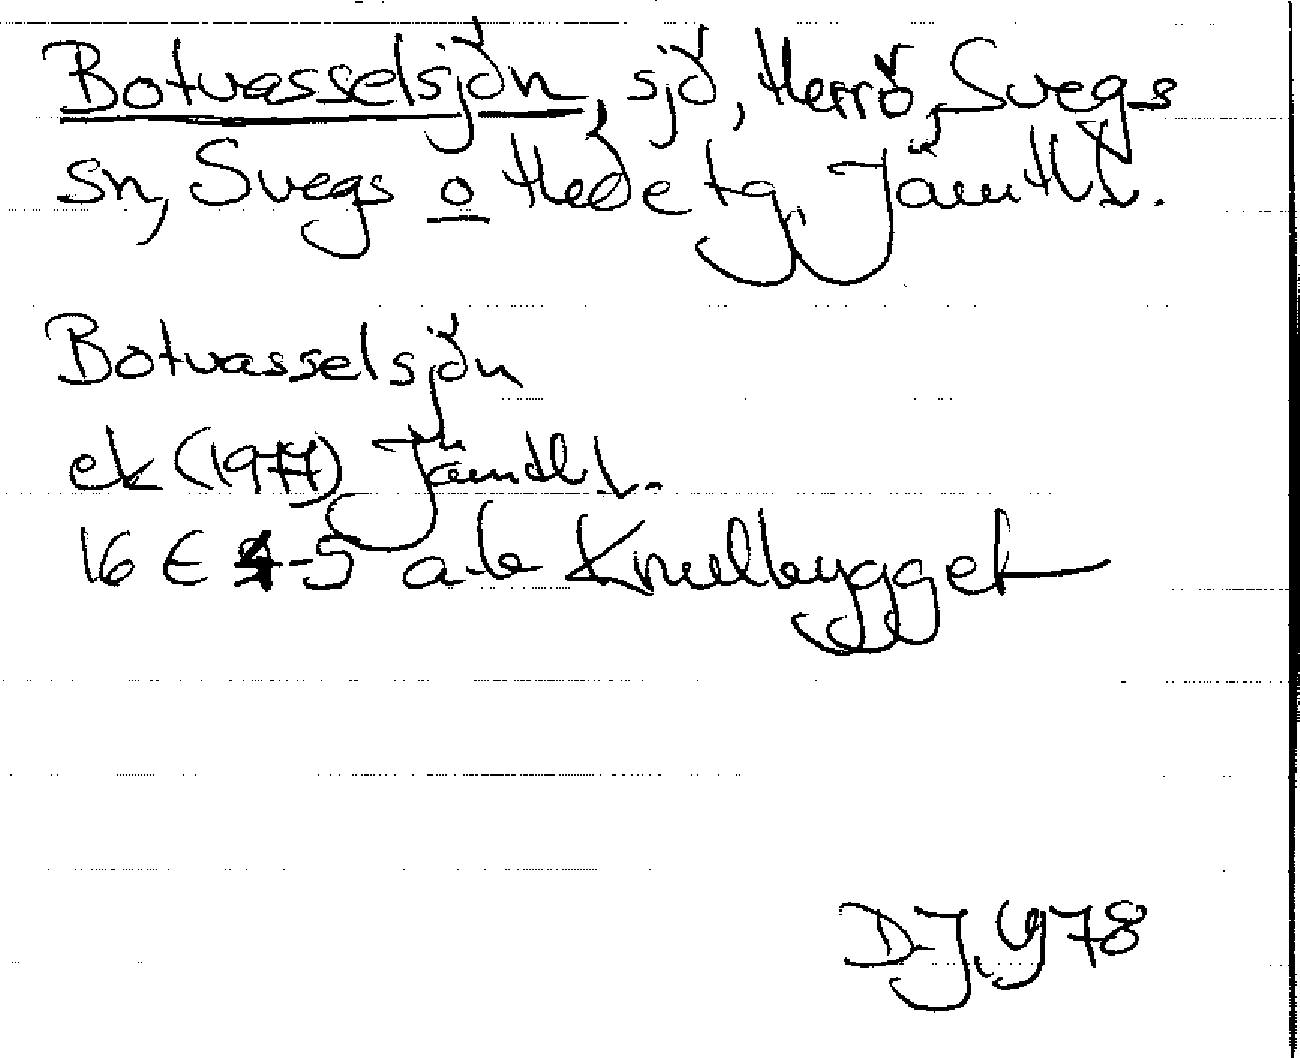 Botvasselsjön, sjö, Herrö, Svegs
sn, Svegs o Hede tg, Jämtl l.
Botvasselsjön
ek (1977) Jämtl l.
16 E 4-5 a-b Knulbygget
DJ 1978